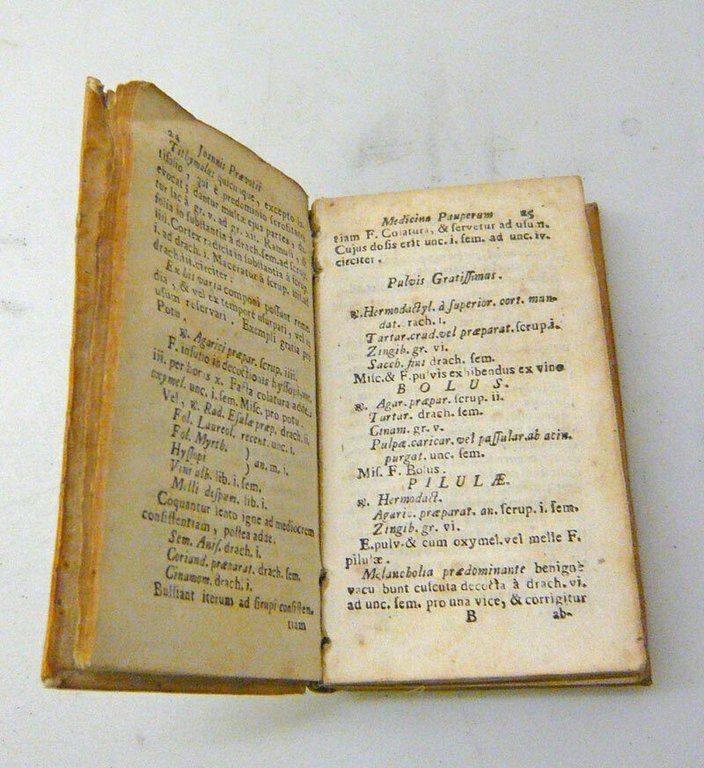 24 Joannis Prævotii
Tithymalus quicunque, excepto la-
tifolio, qui è prædominio serositatem
evocat; dantur multæ ejus partes, da-
tur lac à gr. v. ad gr. xii. Ramuli, &
folia in substantia à drach. sem. ad scrup.
iiii. Cortex radicis in substantia à scrup.
i. ad drach. i. Maceratur à scrup. iiii. ad
drach. iii. circiter.
Ex his varia componi possunt reme-
dia, & vel ex tempore usurpari, vel in
usum reservari. Exempli gratia pro
Potu.
℞. Agarici præpar. scrup. iiii.
F. infusio in decoctionis hyssopi unc.
iii. per horas x. Facta colatura adde,
oxymel. unc. i. sem. Misc. pro potu.
Vel, ℞. Rad. Esulæ præp. drach. ii.
Fol. Laureol. recent. unc. i.
Fol. Myrth.
Hyssopi } an. m. i.
Vini alb. lib. i. sem.
Melli despum. lib. i.
Coquantur lento igne ad mediocrem
consistentiam, postea adde.
Sem. Anis. drach. i.
Coriand. præparat. drach. sem.
Cinamom. drach. i.
Bulliant iterum ad sirupi consisten-
tiam
Medicina Pauperum 25
tiam F. Colatura, & servetur ad usum.
Cujus dosis erit unc. i. sem. ad unc. iv.
circiter.
Pulvis Gratissimus.
℞. Hermodactyl. à superior. cort. mun-
dat. drach. i.
Tartar. crud. vel præparat. scrup. i.
Zingib. gr. vi.
Sacch. fini drach. sem.
Misc. & F. pulvis exhibendus ex vino
BOLUS.
℞. Agar. præpar. scrup. ii.
Tartar. drach. sem.
Cinam. gr. v.
Pulpæ caricar. vel passular. ab acin.
purgat. unc. sem.
Mis. F. Bolus.
PILULÆ.
℞. Hermodact.
Agaric. præparat. an. scrup. i. sem.
Zingib. gr. vi.
E. pulv. & cum oxymel. vel melle F.
pilulæ.
Melancholia prædominante benignè
vacu bunt cuscuta decocta à drach. vi.
ad unc. sem. pro una vice, & corrigitur
B ab-